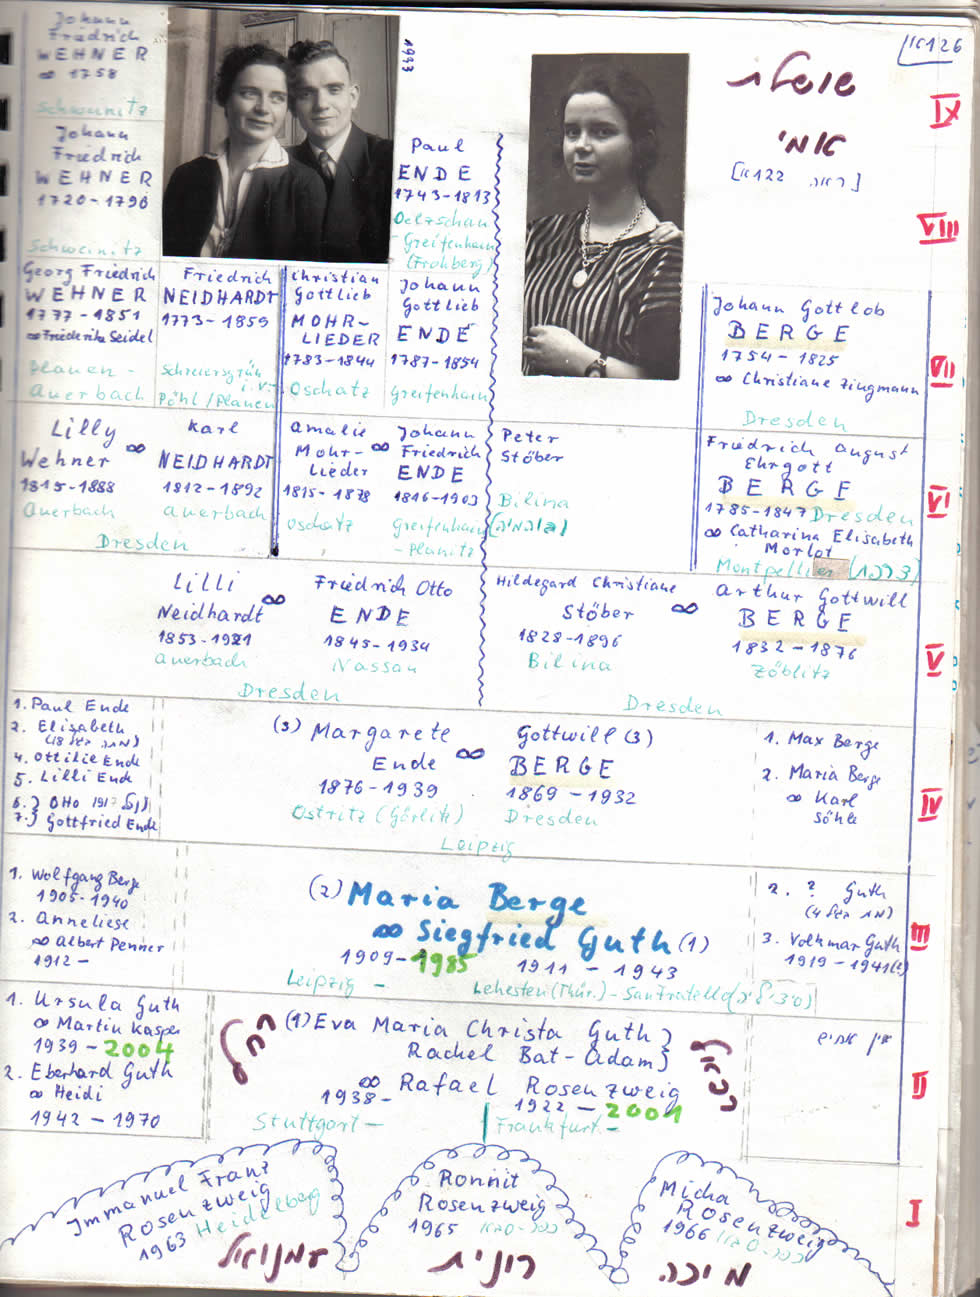 Johann
Friedrich
WEHNER
∞ 1758
Schweinitz
Johann
Friedrich
WEHNER
1720-1790
Schweinitz
1933
Paul
ENDE
1743-1813
Oelzschau
- Greifenhain
(Frohberg)
אמי
126
IX
VIII
Georg Friedrich
WEHNER
1777-1851
∞ Friederike Seidel
Plauen -
Auerbach
Friedrich
NEIDHARDT
1773-1859
Schreiersgrün
i. V.
Pöhl / Plauen
Christian
Gottlieb
MOHR-
LIEDER
1783-1844
Oschatz
Johann
Gottlieb
ENDE
1787-1854
Greifenhain
Johann Gottlob
BERGE
1754-1825
∞ Christiane Zingmann
Dresden
VII
Lilly ∞
Wehner
1815-1888
Auerbach
Karl
NEIDHARDT
1812-1892
Auerbach
Dresden
Amalie ∞
Mohr-
Lieder
1815-1878
Oschatz
Johann
Friedrich
ENDE
1816-1903
Greifenhain
- Planitz
Peter
Stöber
Bilina
Friedrich August
Ehrgott
BERGE
1785-1847 Dresden
∞ Catharina Elisabeth
Morlot
Montpellier
VI
Lilli ∞
Neidhardt
1853-1921
Auerbach
Friedrich Otto
ENDE
1845-1934
Nassau
Dresden
Hildegard Christiane
Stöber ∞
1828-1896
Bilina
Arthur Gottwill
BERGE
1832-1876
Zöblitz
Dresden
V
1. Paul Ende
2. Elisabeth
4. Ottilie Ende
5. Lilli Ende
6. } Otto 1917
7. } Gottfried Ende
(3) Margarete ∞
Ende
1876-1939
Ostritz (Görlitz)
Gottwill (3)
BERGE
1869-1932
Dresden
Leipzig
1. Max Berge
2. Maria Berge
∞ Karl
Söhle
IV
1. Wolfgang Berge
1905-1940
2. Anneliese
∞ Albert Penner
1912-
(2) Maria Berge
∞ Siegfried Guth (1)
1909-1985 1911-1943
Leipzig - Lehesten (Thür.) - San Fratello
2. ? Guth
3. Volkmar Guth
1919-1941
III
1. Ursula Guth
∞ Martin Kasper
1939-2004
2. Eberhard Guth
∞ Heidi
1942-1970
רחל
(1) Eva Maria Christa Guth }
Rachel Bat-Adam }
∞ Rafael Rosenzweig
1938- 1922-2001
Stuttgart - Frankfurt -
אין אחים
II
Immanuel Franz
Rosenzweig
1963 Heidelberg
עמנואל
Ronnit
Rosenzweig
1965
רונית
Micha
Rosenzweig
1966
מיכה
I